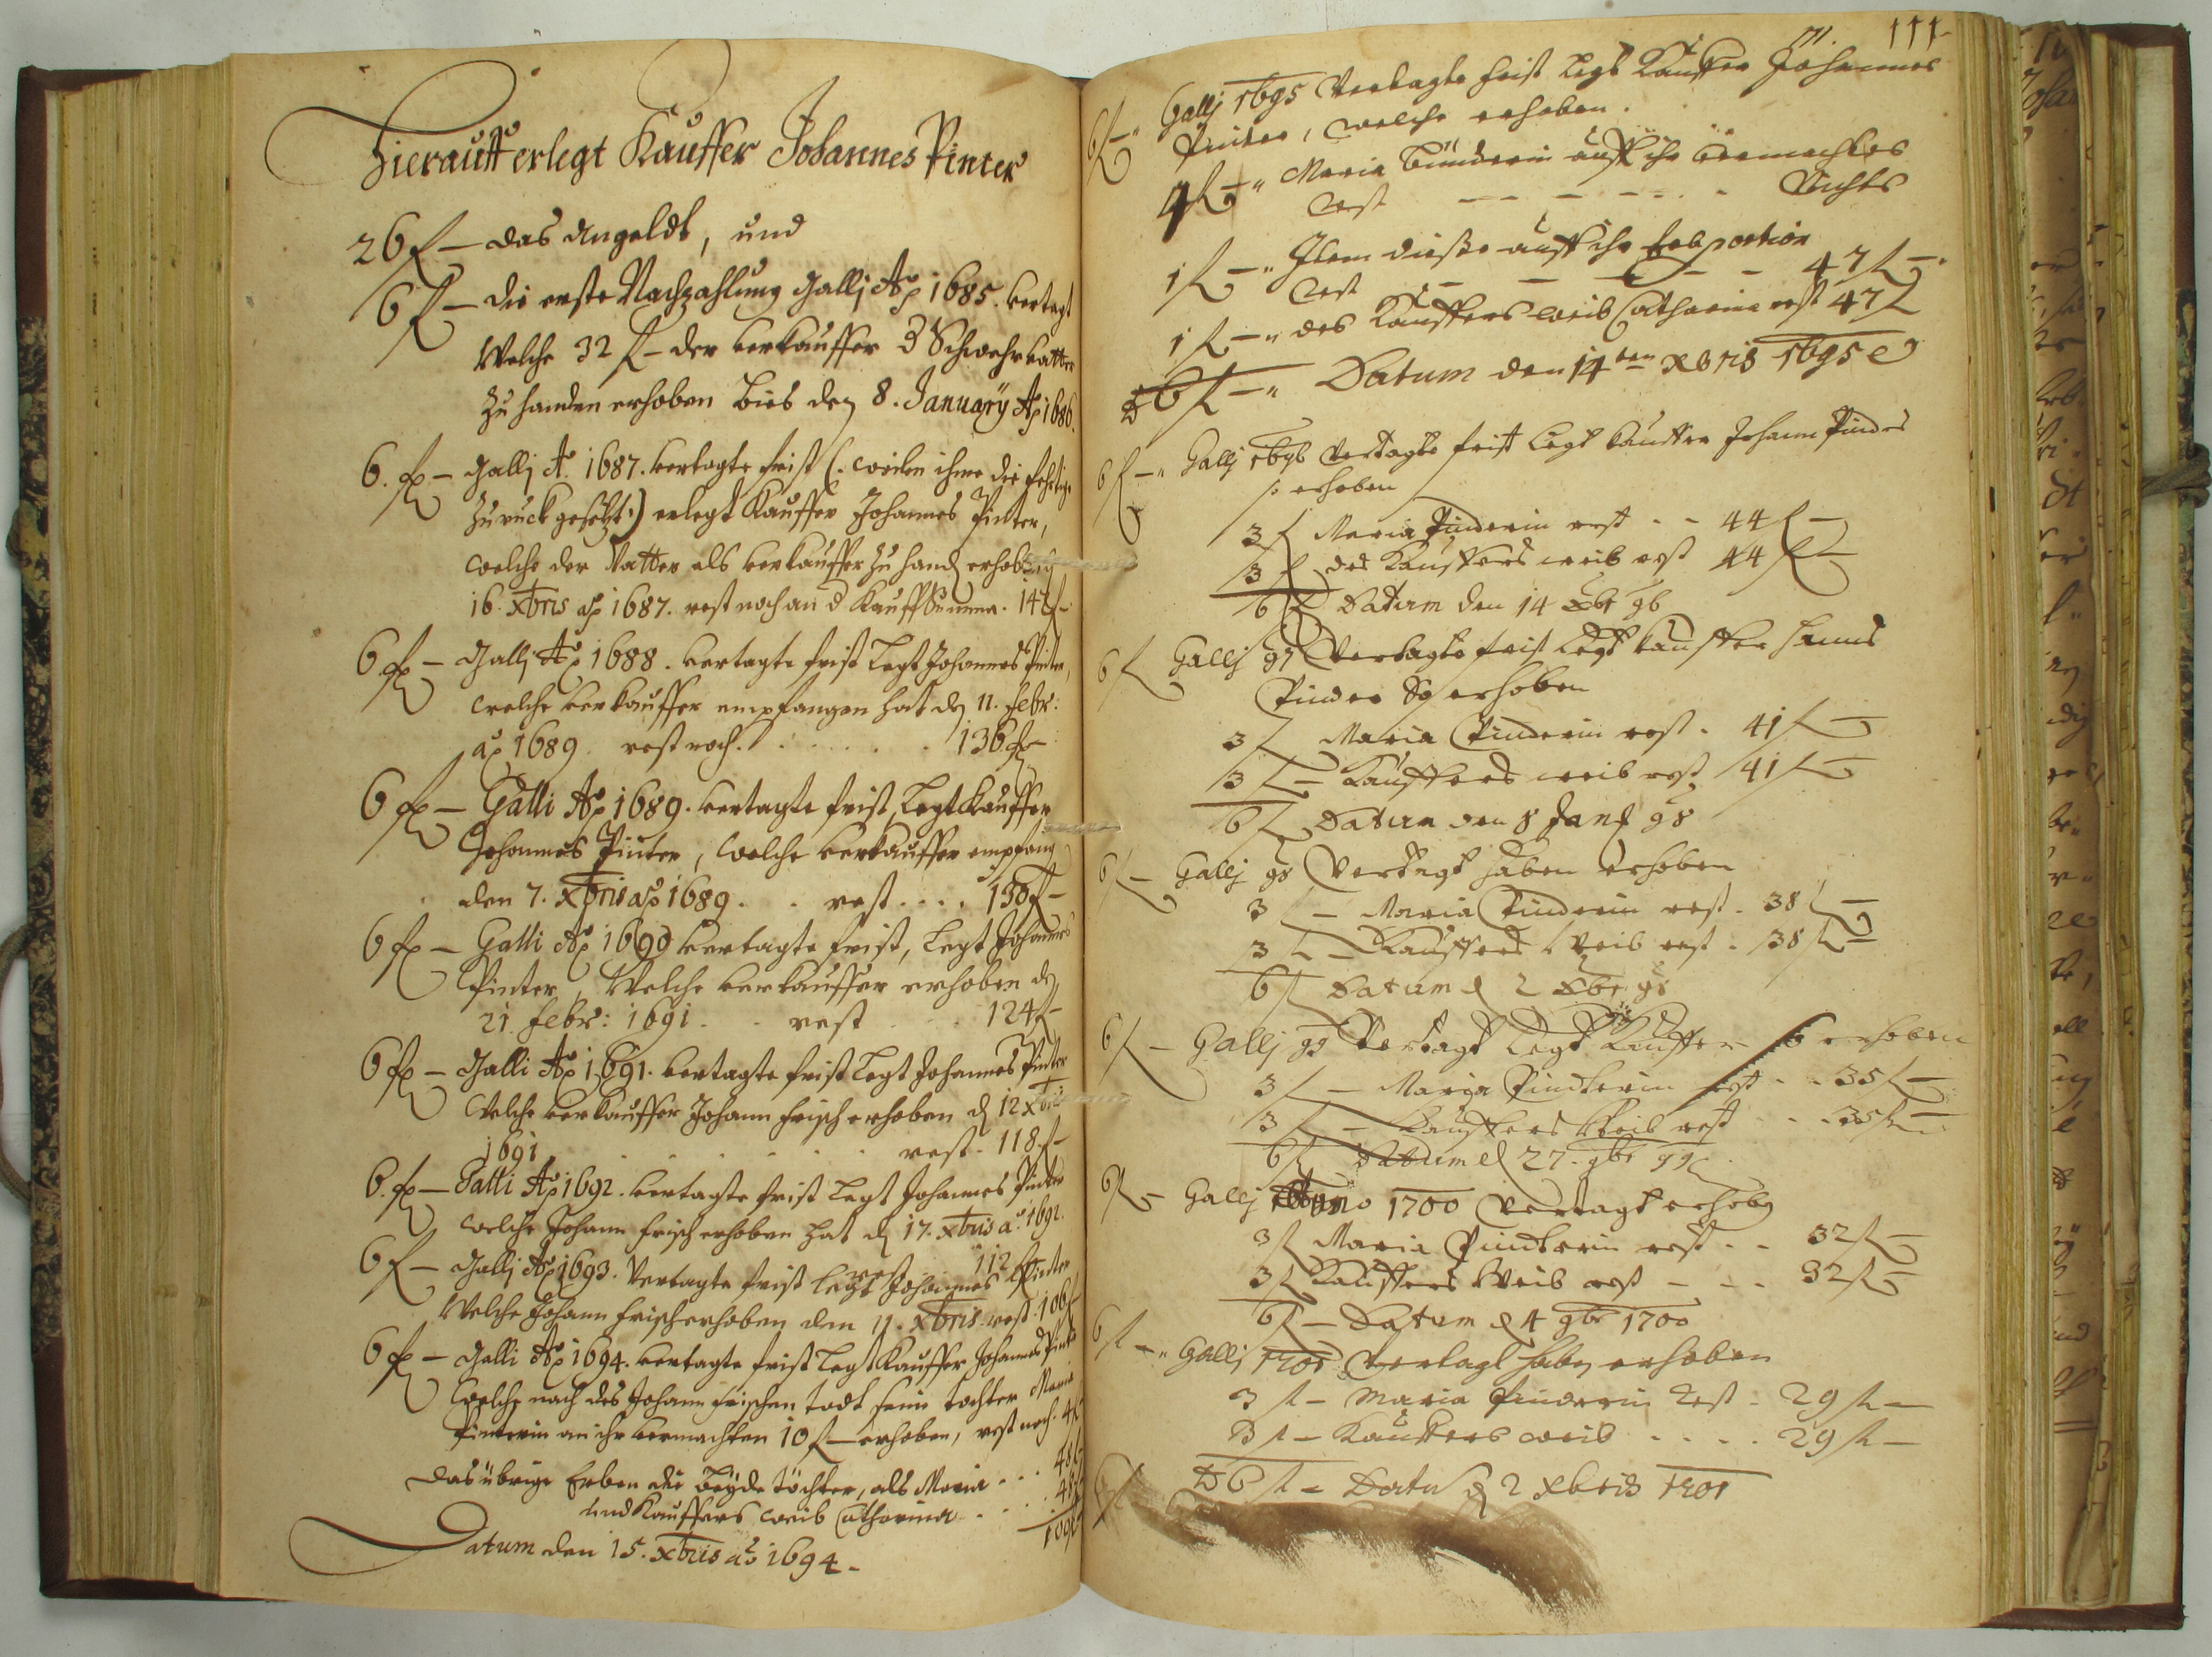 Hierauff erlegt Kauffer Johannes Pinter
26 f — das Angeldt, und
6 f — die erste Nachzahlung Gallj Aō 1685. vertagt
Welche 32 f — der verkauffer d Schwehrvatter
zu handen erhoben biß den 8. January Aō 1686.
6. fl — Gallj Aō 1687. vertagte frist (: weilen ihme die
zuruck gesetzt :) erlegt Kauffer Johannes Pinter,
welche der Vatter als verkauffer zu hand erhoben
16. Xbris aō 1687. rest noch an d Kauff Summa.
6 fl — Gallj Aō 1688. vertagte frist legt Johannes Pinter,
welche verkauffer empfangen hat den 11. Febr:
aō 1689. rest noch. . . . . . . 136 fl —
6 fl — Galli Aō 1689. vertagte frist, legt Kauffer
Johannes Pinter, welche verkauffer empfang
den 7. Xbris aō 1689. . . rest . . . . 130 f —
6 fl — Galli Aō 1690 vertagte frist, legt Johannes
Pinter, Welche verkauffer erhoben den
21. Febr: 1691. . . rest . . . 124 f —
6 fl — Galli Aō 1691. vertagte frist legt Johannes Pinter
Welche verkauffer Johann Frisch erhoben d 12 Xbris
1691 . . . . . . rest . 118. f —
6. fl — Galli Aō 1692. vertagte frist legt Johannes Pinter
welche Johann Frisch erhoben hat d 17. Xbris aō 1692.
rest . . 112 f
6 f — Gallj Aō 1693. Vertagte frist legt Johannes Pinter
Welche Johann Frisch erhoben den 11. Xbris. rest . 106 f
6 fl — Galli Aō 1694. vertagte frist legt Kauffer Johannes Pinter
welche nach des Johann Frischen todt seine tochter Maria
Pinterin an ihr vermachten 10 f — erhoben, rest noch. 4 f
Das übrige Erben die beyde töchter, als Maria . . . 48 f
und Kauffers weib Catharina . . . . 48 f
100 f
Datum den 15. Xbris aō 1694 —
171. 171
6 f — Gallj 1695 Vertagte frist legt Kauffer Johannes
Pinder, welche erhoben.
4 f — " Maria auff ihr vermachtes
rest — — — — — . . Nichts
1 f — " Item dieße auff ihr Erbportion
rest — — — — — 47 f —
1 f — " des Kauffers weib Catharina rest 47 f
6 f — " Datum den 14ten Xbris 1695
6 f — " Gallj 1696 Vertagte frist legt Kauffer Johann Pinder
so erhoben
3 f Maria Pinderin rest - - 44 f —
3 f des Kauffers weib rest 44 f —
6 f Datum den 14 Xbr 96
6 f Gallj 97 Vertagte frist legt Kauffer Hanns
Pinder So erhoben
3 f Maria Pinderin rest . 41 f —
3 f — Kauffers weib rest 41 f —
6 f Datum den 8 Jan 98
6 f — Gallj 98 Vertagt haben erhoben
3 f — Maria Pinderin rest . 38 f —
3 f — Kauffers Weib rest . 38 f —
6 f Datum d 2 Xbr 98
6 f — Gallj 99 Vertagt legt Kauffer so erhoben
3 f — Maria Pinderin rest . . 35 f —
3 f — Kauffers Weib rest . . . 35 f —
6 f Datum d 27. 9br 99
6 f — Gallj Anno 1700 Vertagt erhoben
3 f Maria Pinderin rest . - 32 f —
3 f Kauffers Weib rest — - - 32 f —
6 f — Datum d 4 9br 1700
6 f — " Gallj 1701 Vertagt haben erhoben
3 f — Maria Pinderin Rest . 29 f —
3 f — Kauffers weib . . . . 29 f —
6 f — Datu d 2 Xbris 1701